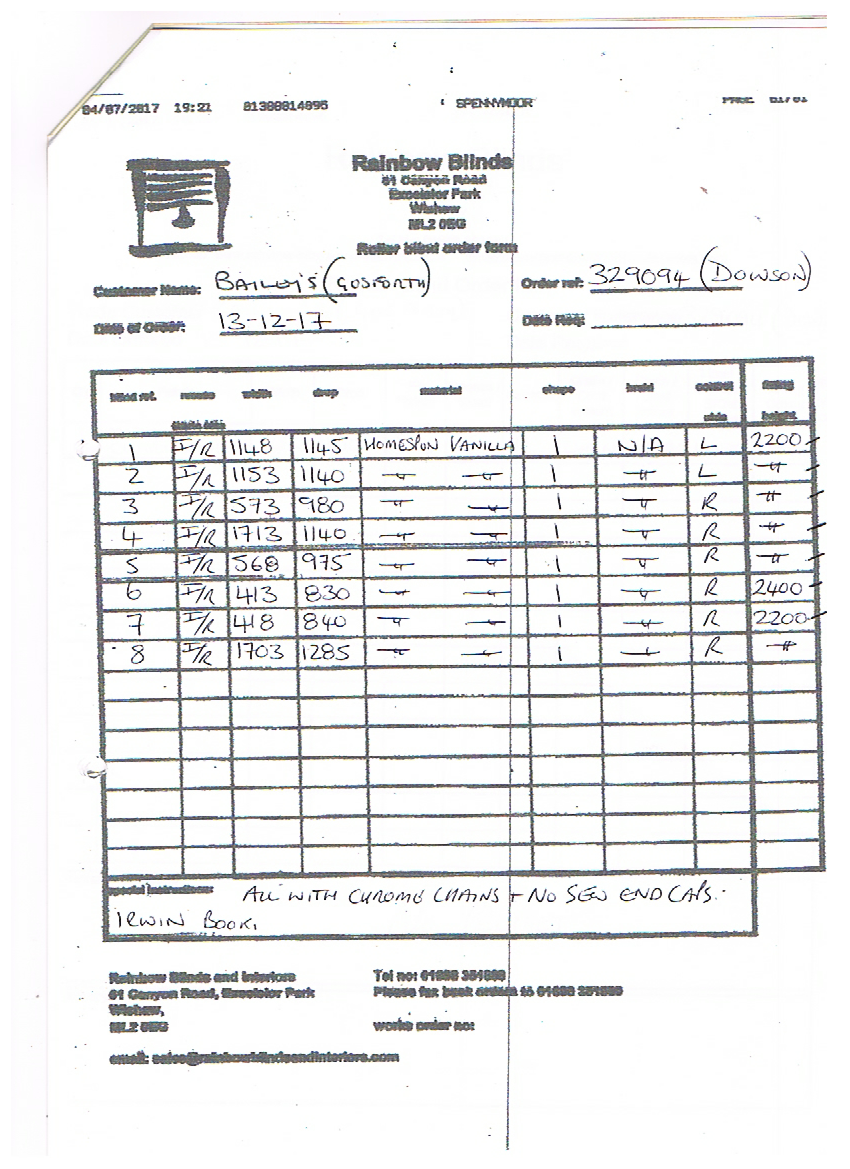 04/07/2017 19:21 01388814896 SPENNYMOOR PAGE 01/01
Rainbow Blinds
Canyon Road
Excelsior Park
Wishaw
Roller blind order form
Customer Name: BAILEY'S (GOSFORTH) Order ref: 329094 (DOWSON)
Date of Order: 13-12-17 Date Req:
blind ref. width drop material shape braid control fitting
side height
1 I/R 1148 1145 HOMESPUN VANILLA 1 N/A L 2200
2 I/R 1153 1140 " " 1 " L "
3 I/R 573 980 " " 1 " R "
4 I/R 1713 1140 " " 1 " R "
5 I/R 568 975 " " 1 " R "
6 I/R 413 830 " " 1 " R 2400
7 I/R 418 840 " " 1 " R 2200
8 I/R 1703 1285 " " 1 " R "
Special instructions: ALL WITH CHROME CHAINS + NO SEW END CAPS.
IRWIN BOOK.
Rainbow Blinds and Interiors Tel no:
Canyon Road, Excelsior Park Please fax back orders to
Wishaw,
works order no:
email: sales@rainbowblindsandinteriors.com